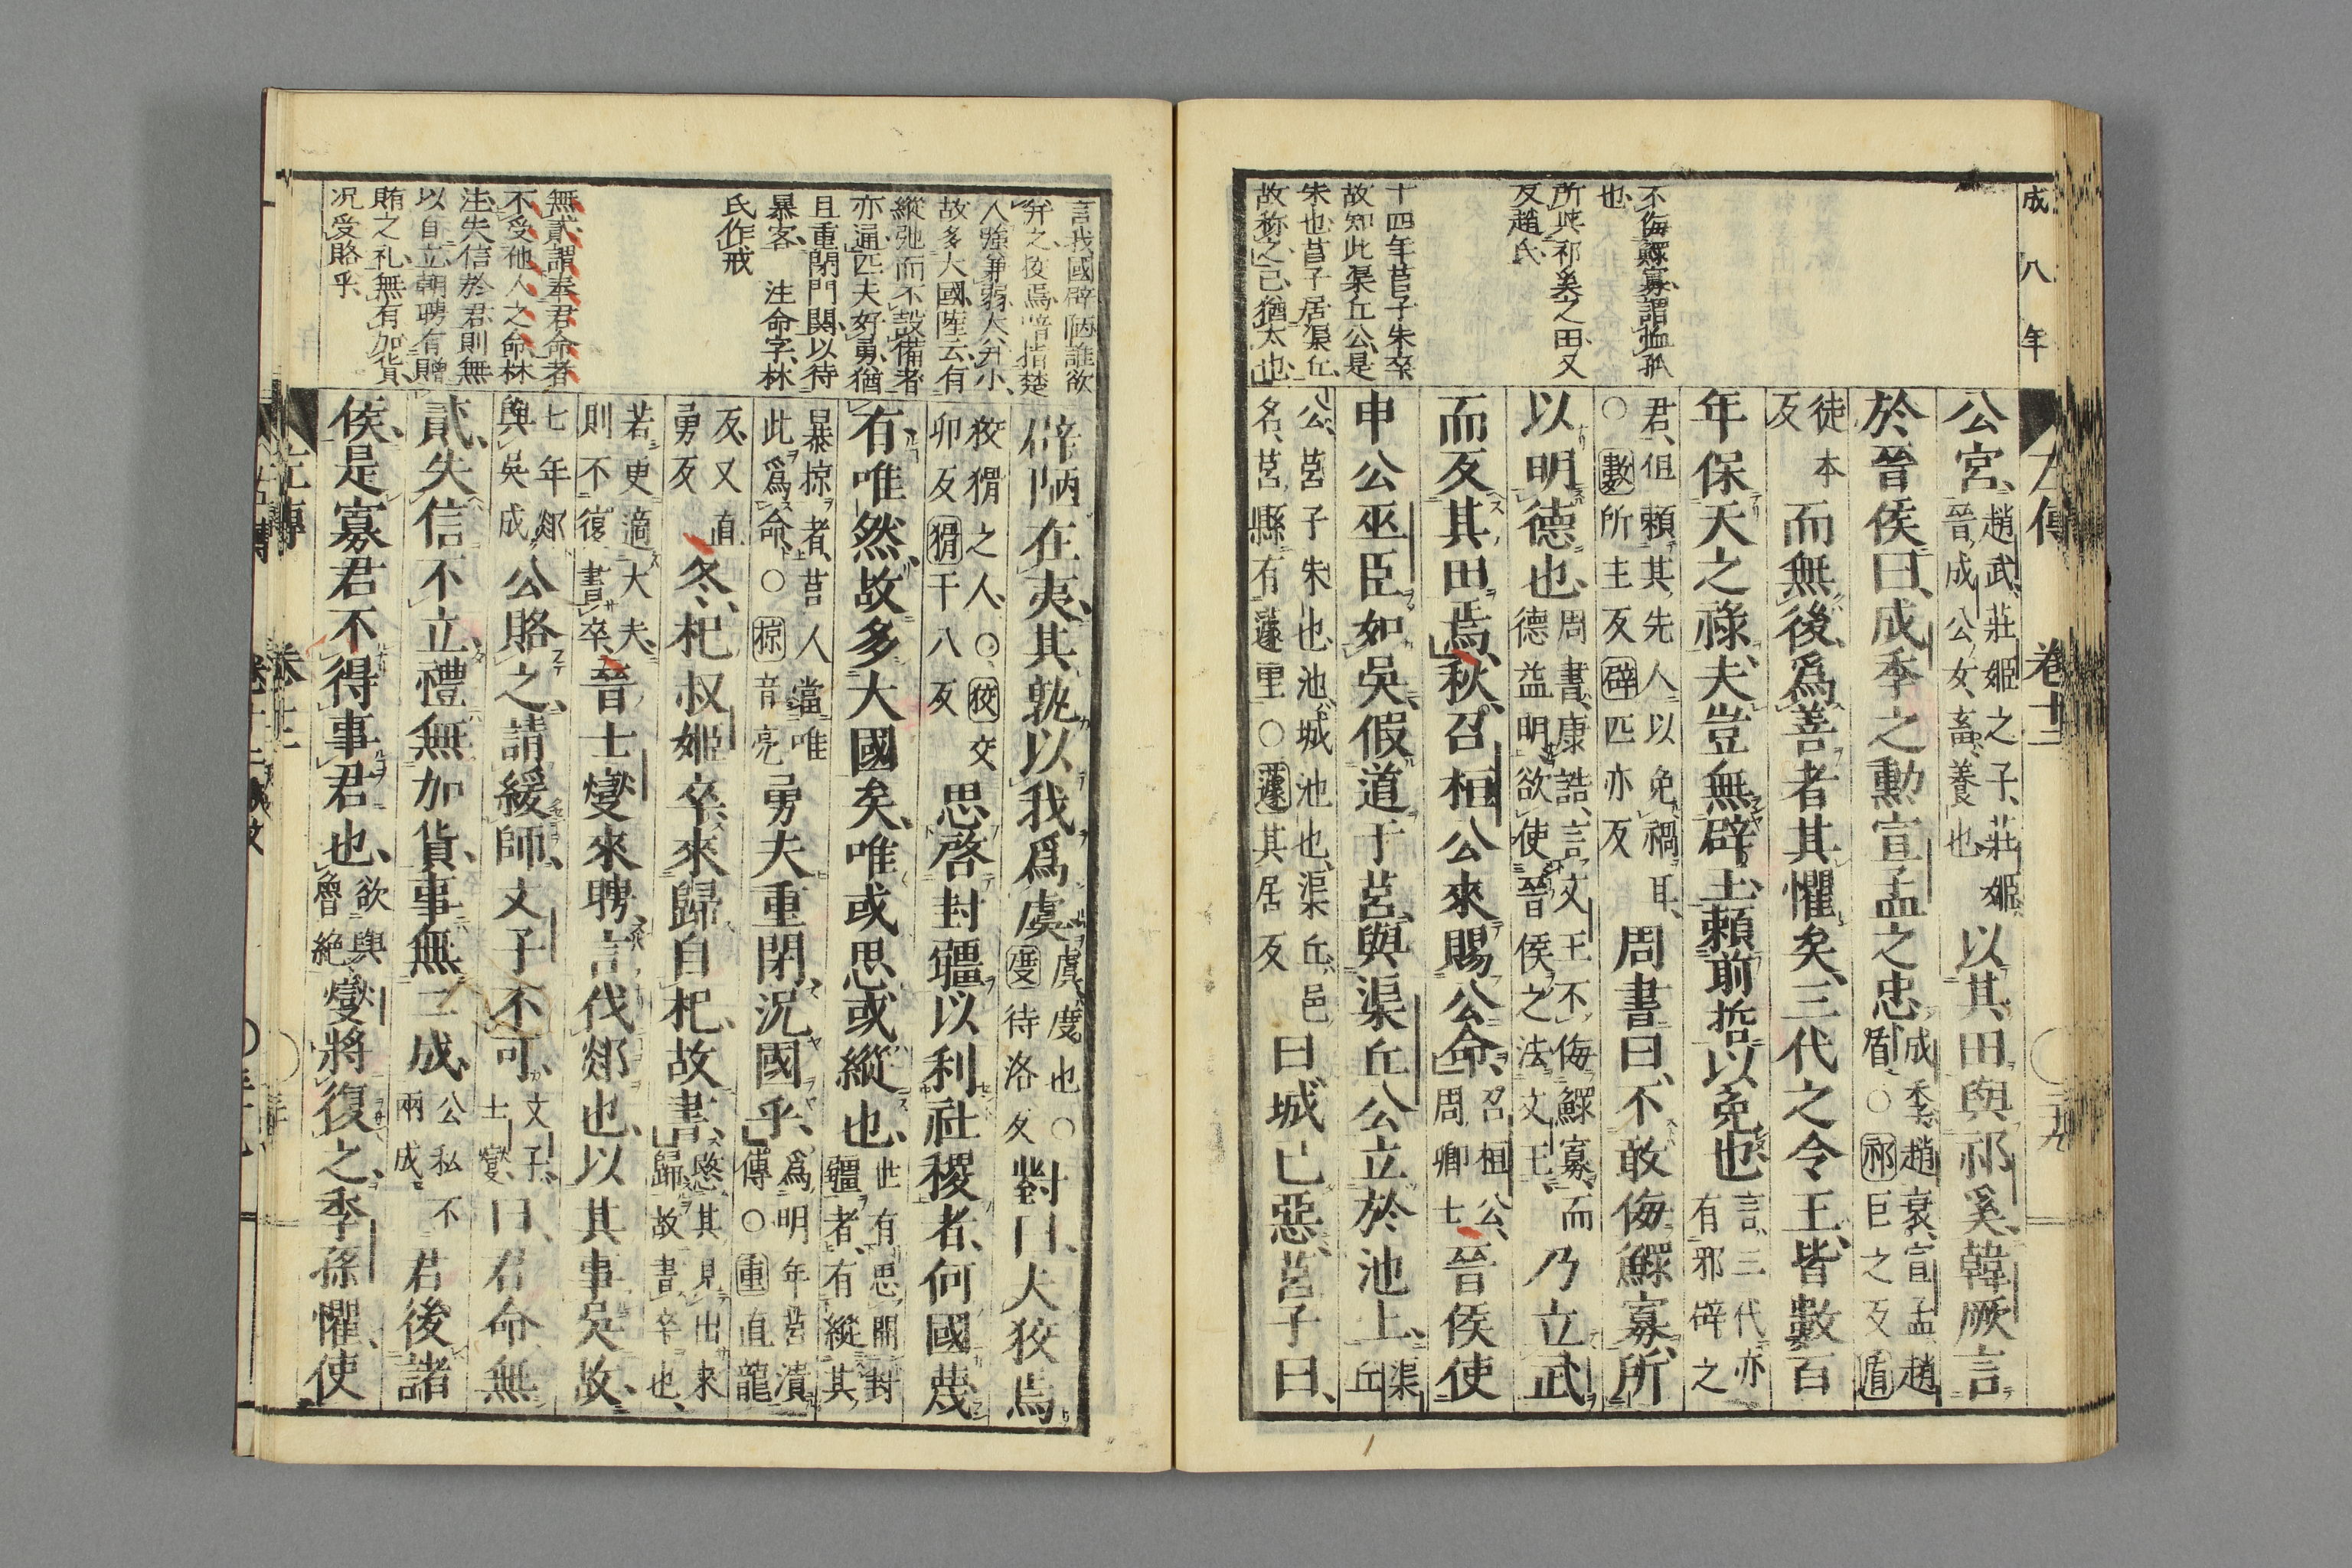 成八年
左傳 卷十二 廿九
不侮鰥寡謂恤孤
也
所與祁奚之田又
反趙氏
十四年莒子朱卒
故知此渠丘公是
朱也、莒子居渠丘、
故称之、已、猶太也、
公宮、趙武莊姬之子、莊姬晉成公女、畜養也以其田與祁奚韓厥言
於晉侯曰、成季之勳宣孟之忠、成季趙衰宣孟趙盾○祁巨之反盾
徒本反而無後、爲善者其懼矣、三代之令王、皆數百
年保天之祿、夫豈無辟王、賴前哲以免也言三代亦有邪辟之
君、但賴其先人以免禍耳、○數所主反辟匹亦反周書曰、不敢侮鰥寡、所
以明德也、周書康誥、言文王不侮鰥寡、而德益明、欲使晉侯之法文王乃立武
而反其田焉、秋、召桓公來賜公命、召桓公、周卿士晉侯使
申公巫臣如吳、假道于莒、與渠丘公立於池上、渠丘
公、莒子朱也、池、城池也、渠丘、邑名、莒縣有蘧里○蘧其居反曰、城已惡、莒子曰、
言我國僻陋誰欲
幷之、後焉、暗指楚
人強兼弱大幷小、
故多大國陸云、有
縱弛而不設備者、
亦逼匹夫好勇、猶
且重閉門關以待
暴客 注命字、林
氏作戒
無貳謂奉君命者
不受他人之命林
注失信於君則無
以自立朝聘有贈
賄之礼無有加貨、
况受賂乎、
辟陋在夷、其孰以我爲虞、虞度也○度待洛反對曰、夫狡焉
狡猾之人、○狡交卯反猾干八反思啓封疆以利社稷者、何國蔑
有、唯然、故多大國矣、唯或思或縱也、世有思開封疆者、有縱其
暴掠者、莒人當唯此爲命、○掠音亮勇夫重閉、況國乎、爲明年莒潰傳○重直龍
反又直勇反冬、杞叔姬卒、來歸自杞、故書、愍其見出來歸故書卒也、
若更適大夫、則不復書卒、晉士燮來聘、言伐郯也、以其事吳故、
七年郯與吳成公賂之、請緩師、文子不可、文子、士燮、曰、君命無
貳、失信不立、禮無加貨、事無二成、公私不兩成君後諸
侯、是寡君不得事君也、欲與魯絕燮將復之、季孫懼、使
左傳 卷十二 三十